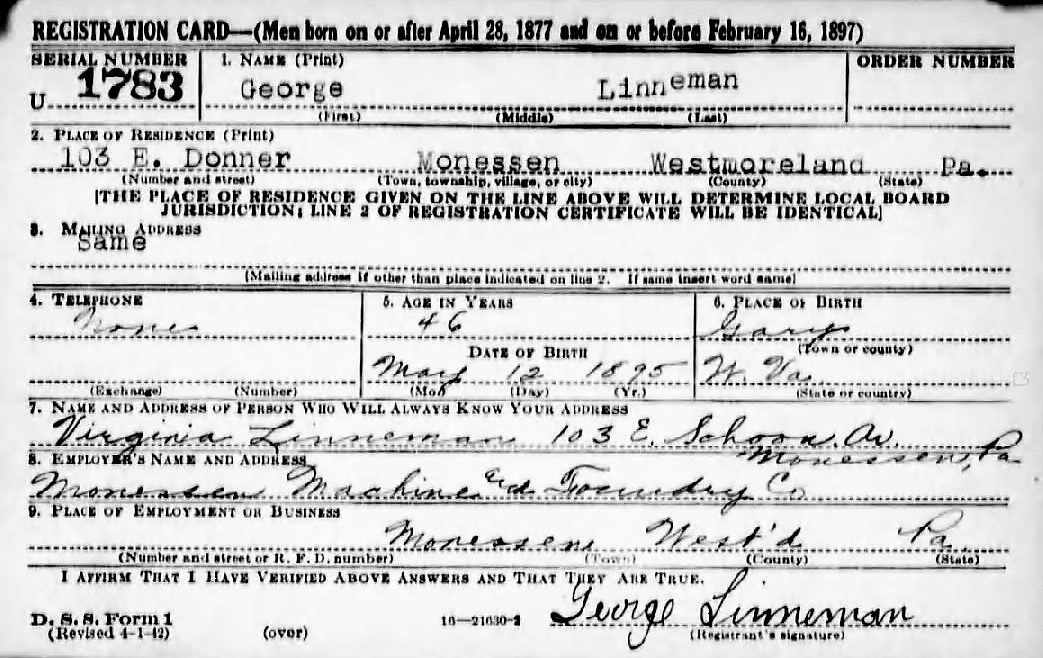 REGISTRATION CARD—(Men born on or after April 28, 1877 and on or before February 16, 1897)
SERIAL NUMBER 1. NAME (Print) ORDER NUMBER
U 1783 George Linneman
(First) (Middle) (Last)
2. PLACE OF RESIDENCE (Print)
103 E. Donner Monessen Westmoreland Pa.
(Number and street) (Town, township, village, or city) (County) (State)
[THE PLACE OF RESIDENCE GIVEN ON THE LINE ABOVE WILL DETERMINE LOCAL BOARD
JURISDICTION; LINE 2 OF REGISTRATION CERTIFICATE WILL BE IDENTICAL]
3. MAILING ADDRESS
Same
[Mailing address if other than place indicated on line 2. If same insert word same]
4. TELEPHONE 5. AGE IN YEARS 6. PLACE OF BIRTH
None 46 Gary
(Town or county)
DATE OF BIRTH
May 12 1895 W. Va.
(Exchange) (Number) (Mo.) (Day) (Yr.) (State or country)
7. NAME AND ADDRESS OF PERSON WHO WILL ALWAYS KNOW YOUR ADDRESS
Virginia Linneman 103 E. Av.
Monessen, Pa
8. EMPLOYER'S NAME AND ADDRESS
Monessen Machine and Foundry Co
9. PLACE OF EMPLOYMENT OR BUSINESS
Monessen West'd Pa.
(Number and street or R. F. D. number) (Town) (County) (State)
I AFFIRM THAT I HAVE VERIFIED ABOVE ANSWERS AND THAT THEY ARE TRUE.
D. S. S. Form 1
(Revised 4-1-42) (over) 16—21630-2 George Linneman
(Registrant's signature)